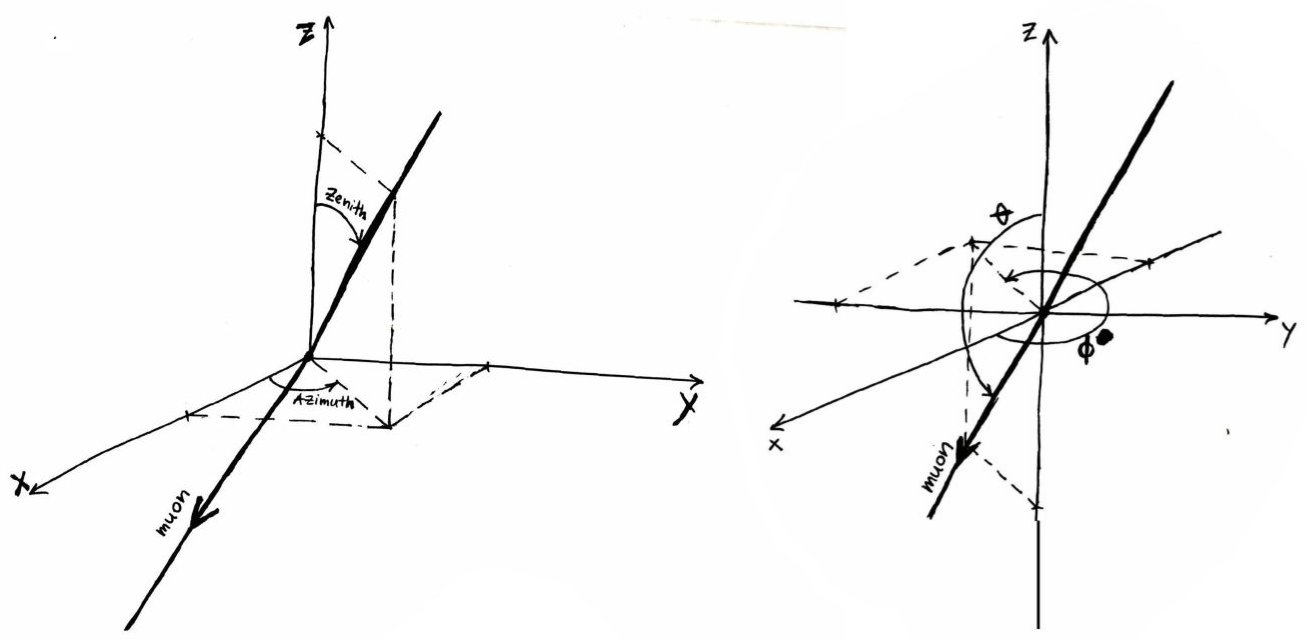 Z
Zenith
Azimuth
X
Y
muon
Z
θ
ϕ
Y
X
muon